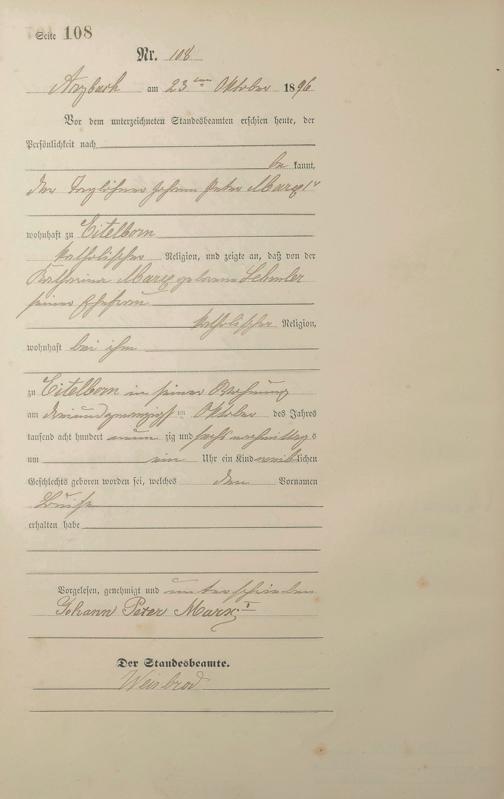 Seite 108
Nr. 108
Arzbach am 23ten Oktober 1896
Vor dem unterzeichneten Standesbeamten erschien heute, der
Persönlichkeit nach
be kannt,
der Taglöhner Johann Peter Marx I
wohnhaft zu Eitelborn
katholischer Religion, und zeigte an, daß von der
Katharina Marx geborene Lehmler
seiner Ehefrau
katholischer Religion,
wohnhaft bei ihm
zu Eitelborn in seiner Wohnung
am dreiundzwanzigsten Oktober des Jahres
tausend acht hundert neun zig und sechs nachmittags
um ein Uhr ein Kind weiblichen
Geschlechts geboren worden sei, welches den Vornamen
Louise
erhalten habe
Vorgelesen, genehmigt und unterschrieben
Johann Peter Marx I
Der Standesbeamte.
Weisbrod